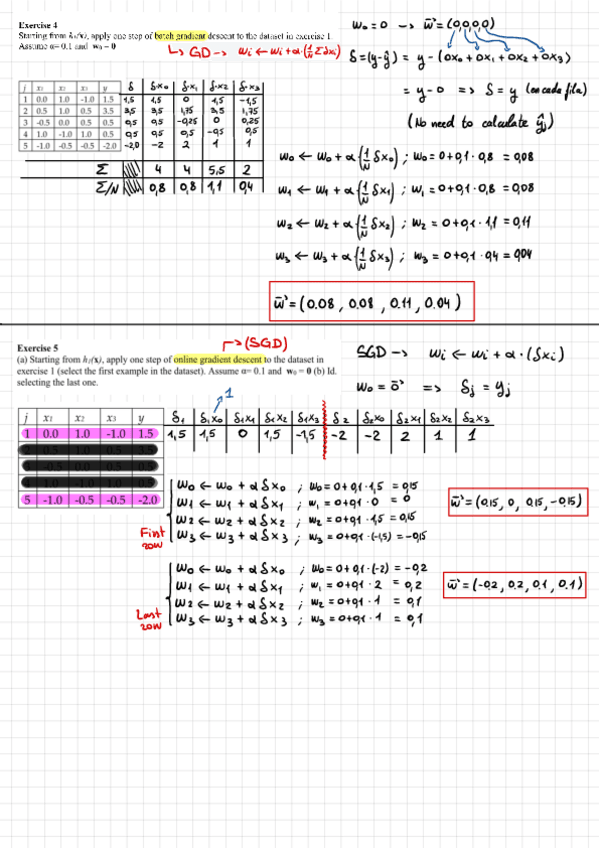 Exercise 4
Starting from h₁(x), apply one step of batch gradient descent to the dataset in exercise 1.
Assume α= 0.1 and w₀ = 0
↳ GD → wi ← wi + α·(1/N Σ δxi)
w₀ = 0 → w̄' = (0,0,0,0)
δ = (y-ŷ) = y - (0x₀ + 0x₁ + 0x₂ + 0x₃)
= y - 0 => δ = y (en cada fila)
(No need to calculate ŷj)
j x₁ x₂ x₃ y δ δ·x₀ δ·x₁ δ·x₂ δ·x₃
1 0.0 1.0 -1.0 1.5 1,5 1,5 0 1,5 -1,5
2 0.5 1.0 0.5 3.5 3,5 3,5 1,75 3,5 1,75
3 -0.5 0.0 0.5 0.5 0,5 0,5 -0,25 0 0,25
4 1.0 -1.0 1.0 0.5 0,5 0,5 0,5 -0,5 0,5
5 -1.0 -0.5 -0.5 -2.0 -2,0 -2 2 1 1
Σ 4 4 5,5 2
Σ/N 0,8 0,8 1,1 0,4
w₀ ← w₀ + α(1/N δx₀) ; w₀ = 0 + 0,1 · 0,8 = 0,08
w₁ ← w₁ + α(1/N δx₁) ; w₁ = 0 + 0,1 · 0,8 = 0,08
w₂ ← w₂ + α(1/N δx₂) ; w₂ = 0 + 0,1 · 1,1 = 0,11
w₃ ← w₃ + α(1/N δx₃) ; w₃ = 0 + 0,1 · 0,4 = 0,04
w̄' = (0.08, 0.08, 0.11, 0.04)
Exercise 5
↱ (SGD)
(a) Starting from h₁(x), apply one step of online gradient descent to the dataset in
exercise 1 (select the first example in the dataset). Assume α= 0.1 and w₀ = 0 (b) Id.
selecting the last one.
SGD → wi ← wi + α·(δxi)
w₀ = 0̄' => δj = yj
1
j x₁ x₂ x₃ y δ₁ δ₁x₀ δ₁x₁ δ₁x₂ δ₁x₃ δ₂ δ₂x₀ δ₂x₁ δ₂x₂ δ₂x₃
1 0.0 1.0 -1.0 1.5 1,5 1,5 0 1,5 -1,5 -2 -2 2 1 1
5 -1.0 -0.5 -0.5 -2.0
First row
w₀ ← w₀ + α δx₀ ; w₀ = 0 + 0,1 · 1,5 = 0,15
w₁ ← w₁ + α δx₁ ; w₁ = 0 + 0,1 · 0 = 0
w₂ ← w₂ + α δx₂ ; w₂ = 0 + 0,1 · 1,5 = 0,15
w₃ ← w₃ + α δx₃ ; w₃ = 0 + 0,1 · (-1,5) = -0,15
w̄' = (0,15, 0, 0,15, -0,15)
Last row
w₀ ← w₀ + α δx₀ ; w₀ = 0 + 0,1 · (-2) = -0,2
w₁ ← w₁ + α δx₁ ; w₁ = 0 + 0,1 · 2 = 0,2
w₂ ← w₂ + α δx₂ ; w₂ = 0 + 0,1 · 1 = 0,1
w₃ ← w₃ + α δx₃ ; w₃ = 0 + 0,1 · 1 = 0,1
w̄' = (-0.2, 0.2, 0.1, 0.1)